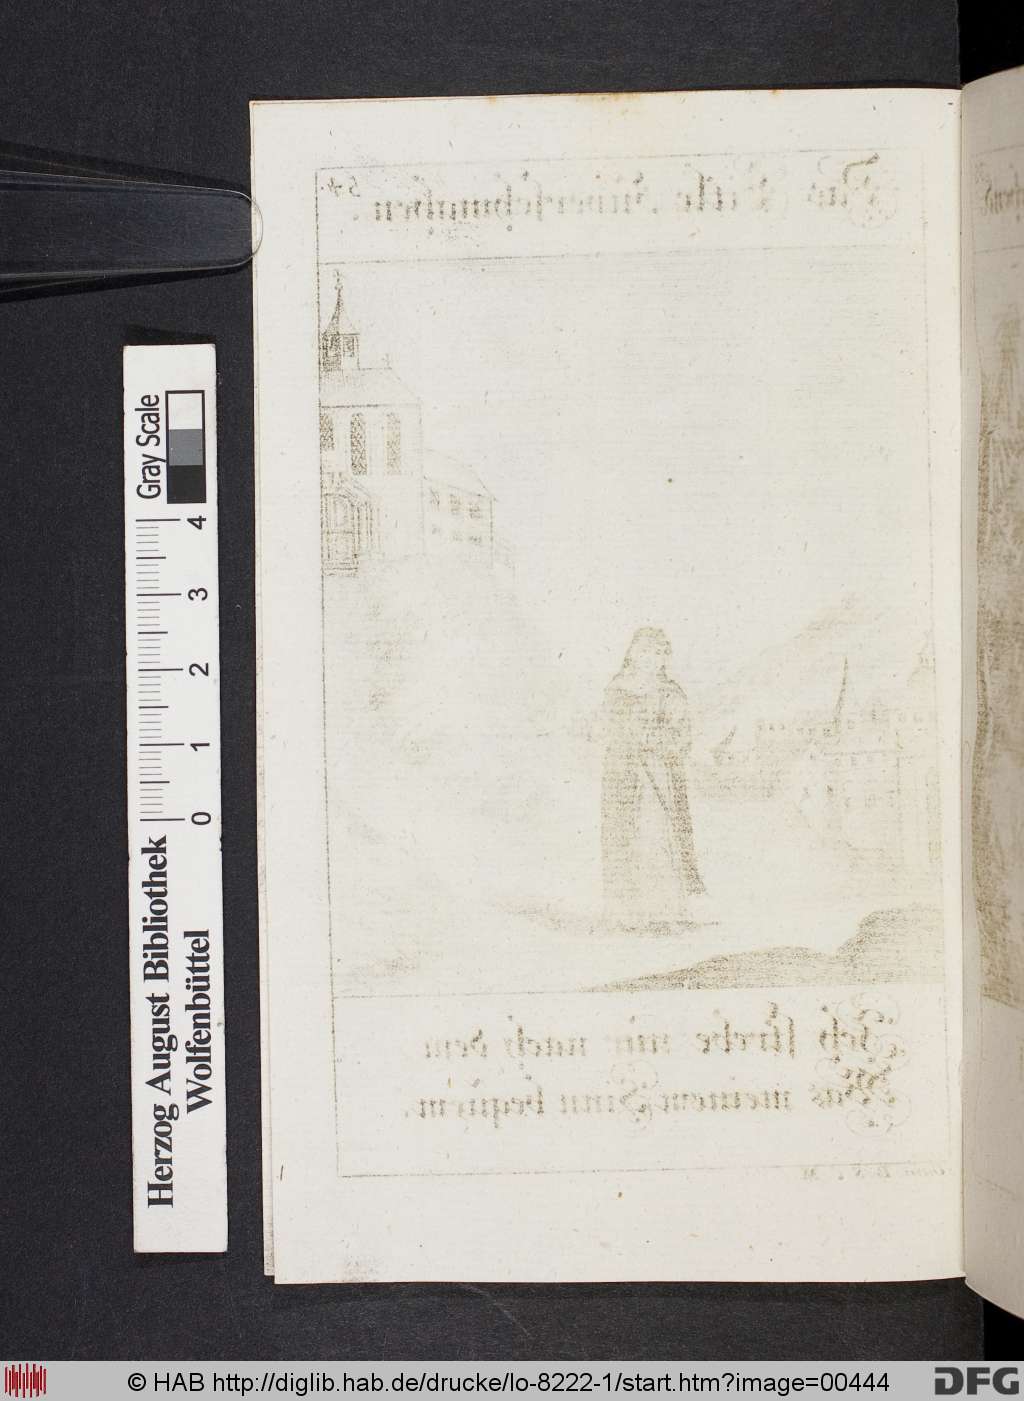 54.
Ich strebe nur nach dem
Was meinem Sinn bequem.
Gray Scale
4
3
2
1
0
Herzog August Bibliothek
Wolfenbüttel
© HAB http://diglib.hab.de/drucke/lo-8222-1/start.htm?image=00444
DFG